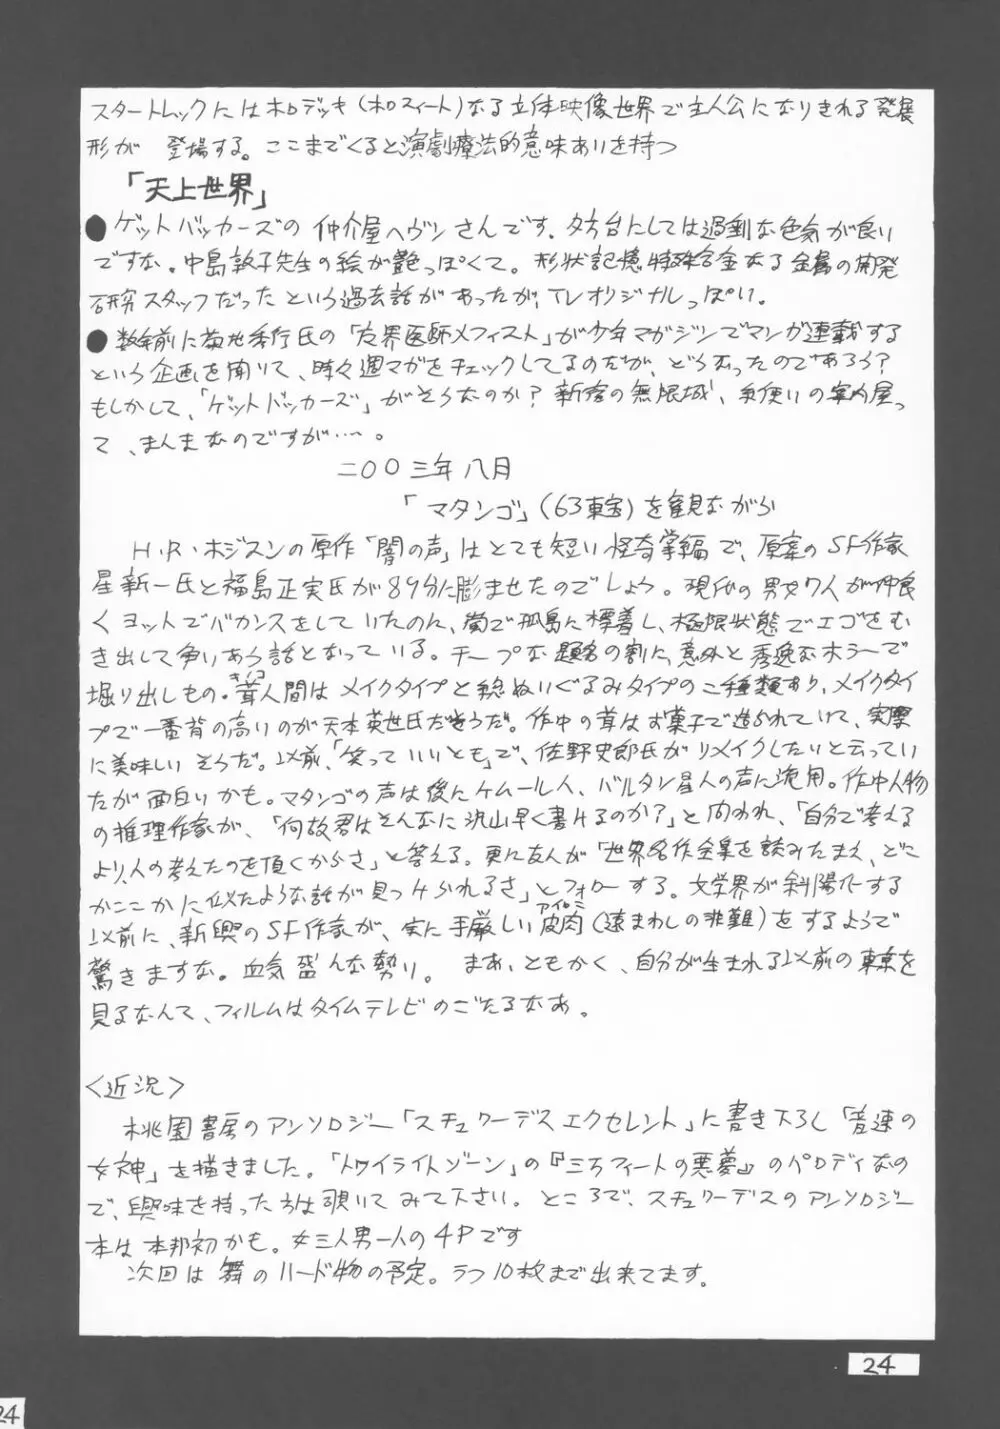 スタートレックにはホロデッキ(ホロスィート)なる立体映像世界で主人公になりきれる発展
形が 登場する。ここまでくると演劇療法的意味あいを持つ
「天上世界」
●ゲットバッカーズの 仲介屋ヘヴンさんです。夕方台にしては過剰な色気が良い
ですな。中島敦子先生の絵が艶っぽくて。形状記憶特殊合金なる金属の開発
研究スタッフだったという過去話があったが、TVオリジナルっぽい。
●数年前に菊地秀行氏の「魔界医師メフィスト」が少年マガジンでマンガ連載する
という企画を聞いて、時々週マガをチェックしてるのだが、どうなったのであろう?
もしかして、「ゲットバッカーズ」がそうなのか?新宿の無限城、糸使いの案内屋っ
て、まんまなのですが…。
二〇〇三年 八月
「マタンゴ」(63東宝)を観ながら
H・R・ホジスンの原作「闇の声」はとても短い怪奇掌編で、原案のSF作家
星新一氏と福島正実氏が89分に膨ませたのでしょう。現代の男女7人が仲良
くヨットでバカンスをしていたのに、嵐で孤島に漂着し、極限状態でエゴをむ
き出して争いあう話となっている。チープな題名の割に、意外と秀逸なホラーで
掘り出しもの。茸人間はメイクタイプと縫ぬいぐるみタイプの二種類あり、メイクタイ
プで一番背の高いのが天本英世氏だそうだ。作中の茸はお菓子で造られていて、実際
に美味しいそうだ。以前、「笑っていいとも」で、佐野史郎氏がリメイクしたいと云ってい
たが面白いかも。マタンゴの声は後にケムール人、バルタン星人の声に流用。作中人物
の推理作家が、「何故君はそんなに沢山早く書けるのか?」と問われ、「自分で考える
より、人の考えたのを頂くからさ」と答える。更に友人が「世界名作全集を読みたまえ、どこ
かここかに似たような話が見つけられるさ」とフォローする。文学界が斜陽化する
以前に、新興のSF作家が、実に手厳しい皮肉(遠まわしの非難)をするようで
驚きますな。血気盛んな勢い。 まあ、ともかく、自分が生まれる以前の東京を
見るなんて、フィルムはタイムテレビのごたるなあ。
〈近況〉
桃園書房のアンソロジー「スチュワーデスエクセレント」に書き下ろし「音速の
女神」を描きました。「トワイライトゾーン」の『三万フィートの悪夢』のパロディなの
で、興味を持った方は覗いてみて下さい。ところで、スチュワーデスのアンソロジー
本は本邦初かも。女三人男一人の4Pです
次回は舞のハード物の予定。ラフ10枚まで出来てます。
24
24